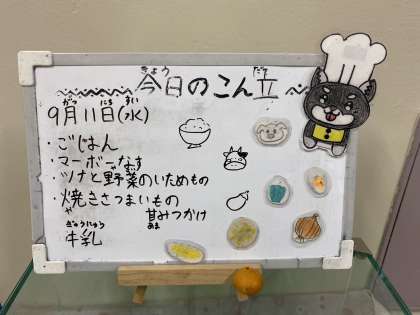 今日のこん立
きょう だて
9月11日(水)
がつ にち すい
・ごはん
・マーボーなす
・ツナと野菜のいためもの
・焼きさつまいもの
や
甘みつかけ
あま
ぎゅうにゅう
牛乳